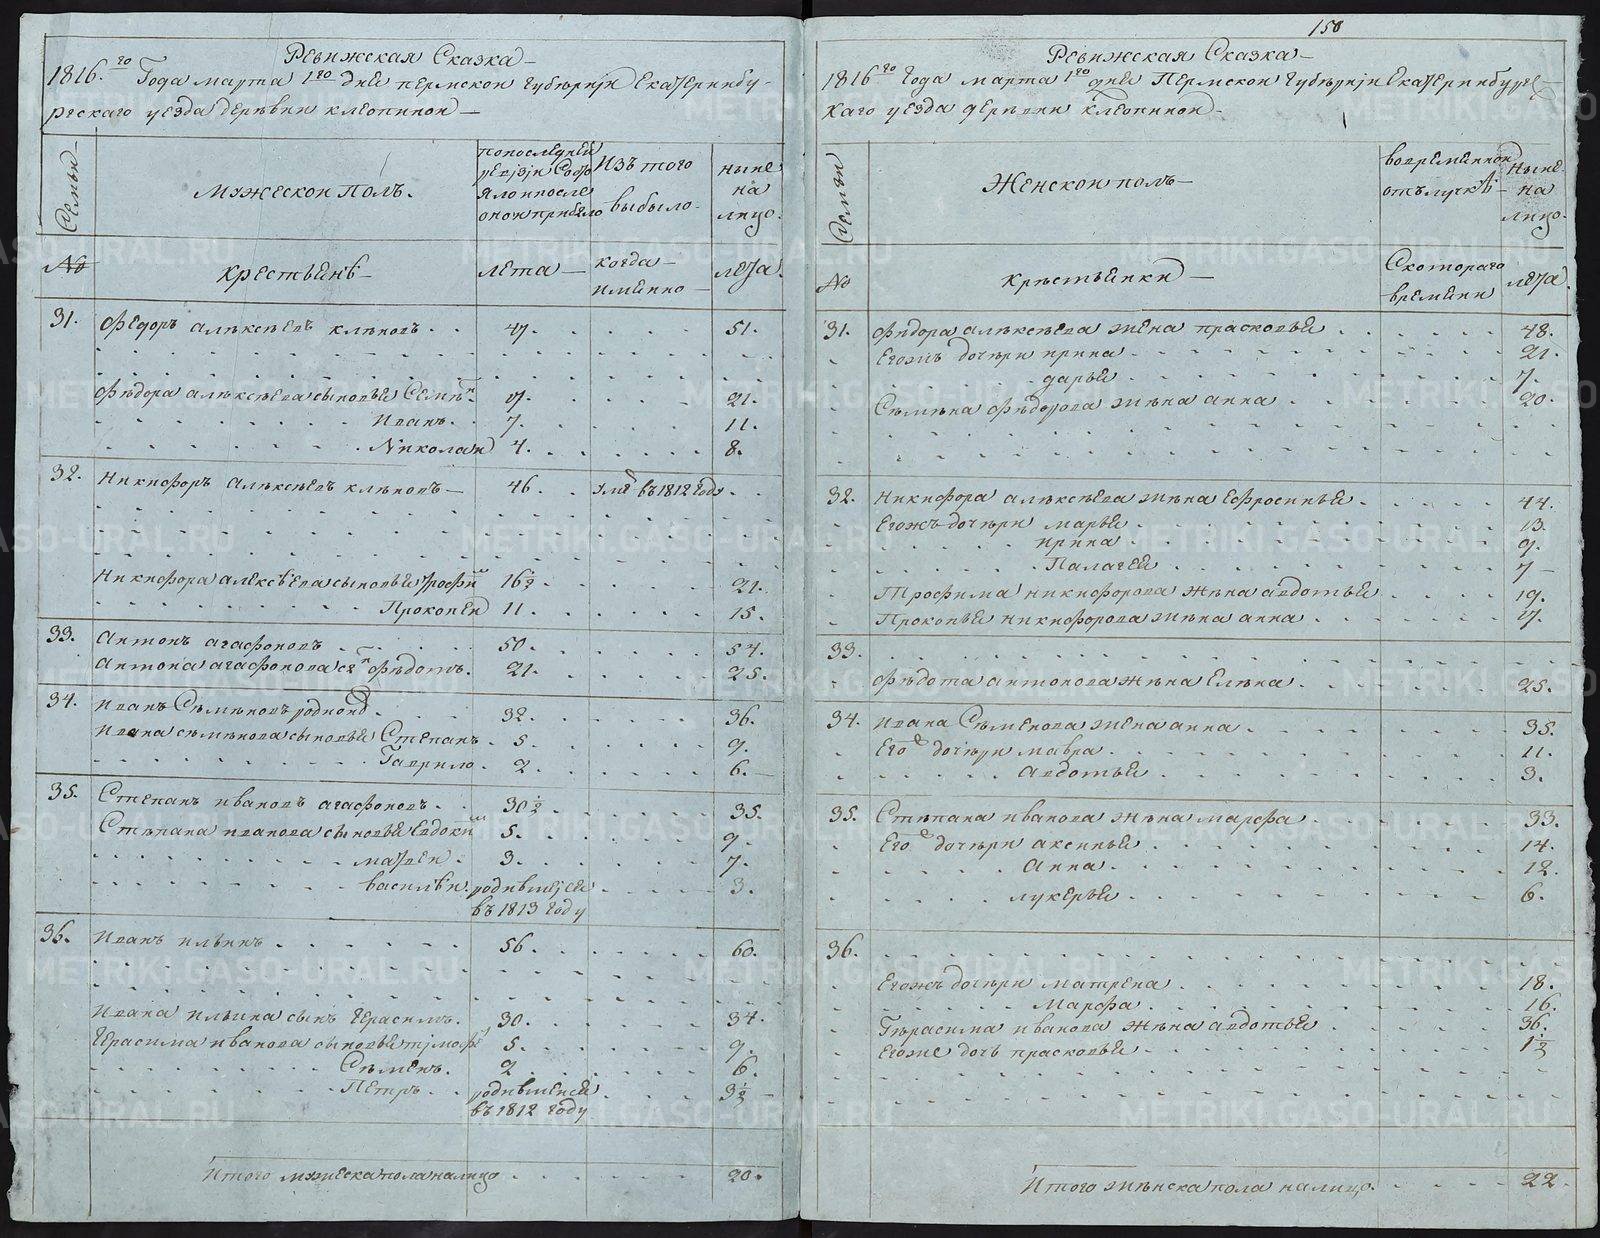 158
Ревижская Сказка
1816.го Года марта 1го дня пермскои губернiи Екатеринбу-
ргскаго уезда деревни клепинои
Семьи
мужескои полъ.
попоследней ревiзiи Состояло ипосле онои прибыло
Изъ того выбыло
ныне на лицо.
№
крестьянъ
лета
когда имянно
лета.
31. Федоръ алексеевъ клѣновъ . . 47. 51.
Федора алексеева сыновья Семенъ 17. 21.
Иванъ. 7. 11.
Николаи 4. 8.
32. Никифоръ алексеевъ клѣновъ 46. умре въ 1812 году
Никифора алексеева сыновья трофим 16½ 21.
Прокопеи 11. 15.
33. Антонъ агафоновъ 50. 54.
Антона агафонова сн федотъ. 21. 25.
34. Иванъ Семеновъ 32. 36.
Ивана семенова сыновья Степанъ 5. 9.
Гаврило. 2. 6.
35. Степанъ ивановъ агафоновъ. 30½ 35.
Степана иванова сыновья Евдоким 5. 9.
матвеи. 3. 7.
василеи. родившеiся 3.
въ 1813 году
36. Иванъ ильинъ 56. 60.
Ивана ильина сынъ Герасимъ. 30. 34.
Герасима иванова сыновья тимофеи 5. 9.
Семенъ. 2. 6.
Петръ. родившеися 3½
въ 1812 году
Итого мужеска пола налицо 20.
Ревижская Сказка
1816го Года марта 1го дня Пермскои губернiи Екатеринбургс-
каго уезда деревни клепинои
Семьи
Женскои полъ
вовременнои отълучкѣ
Ныне на лицо.
№
крестьянки
Скотораго времяни
лета.
31. Федора алексеева жена прасковья 48.
Егожъ дочери ирина 21.
дарья 7.
Семена федорова жена анна 20.
32. Никифора алексеева жена Ефросинья 44.
Егожъ дочери марья 13.
ирина 9.
Палагея 7
Трофима никифорова жена авдотья 19.
Прокопья никифорова жена анна 17.
33.
Федота антонова жена Елена 25.
34. Ивана Семенова жена анна 35.
Его дочери мавра 11.
авдотья 3.
35. Степана иванова жена марфа 33.
Его дочери аксинья 14.
Анна 12.
лукерья 6.
36.
Егожъ дочери матрена 18.
Марфа 16.
Герасима иванова жена авдотья 36.
Егоже дочь прасковья 1½
Итого женска пола налицо. 22.
METRIKI.GASO-URAL.RU